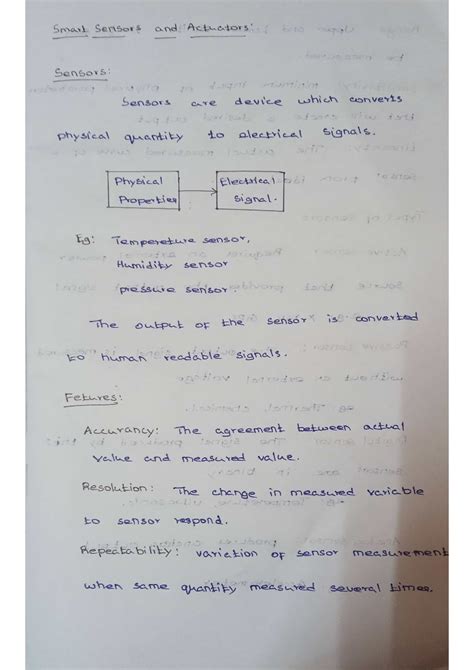 Smart Sensors and Actuators:
Sensors:
Sensors are device which converts
physical quantity to electrical signals.
Physical
Properties
Electrical
signal.
Eg: Tempereture sensor,
Humidity sensor
pressure sensor.
The output of the sensor is converted
to human readable signals.
Fetures:
Accurancy: The agreement between actual
value and measured value.
Resolution: The change in measured variable
to sensor respond.
Repeatability: variation of sensor measurement
when same quantity measured several times.